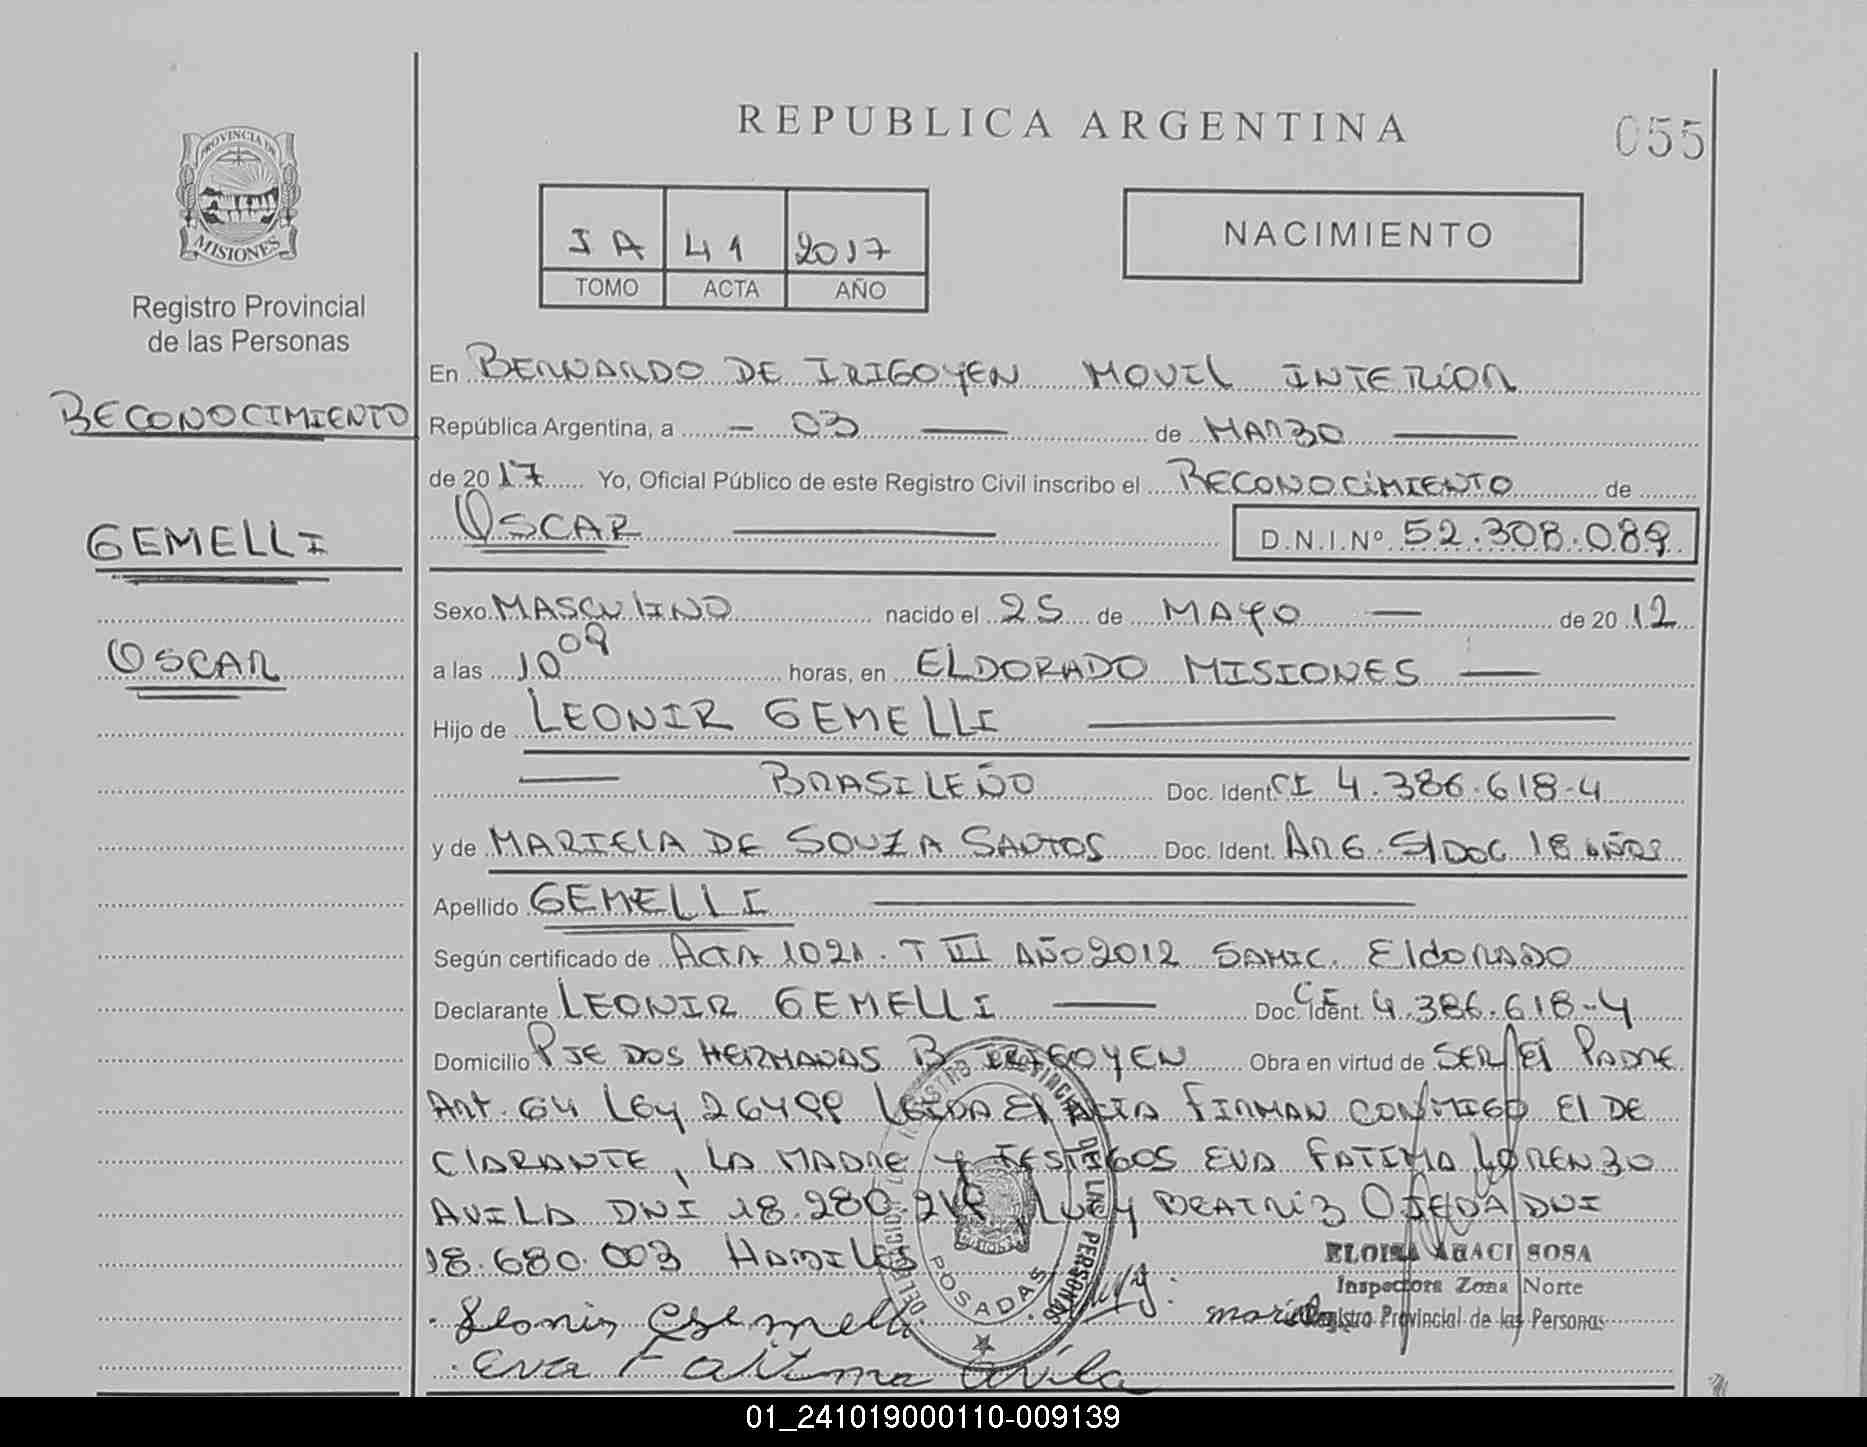 REPUBLICA ARGENTINA
055
PROVINCIA DE
MISIONES
Registro Provincial
de las Personas
IA 41 2017
TOMO ACTA AÑO
NACIMIENTO
RECONOCIMIENTO
GEMELLI
OSCAR
En BERNARDO DE IRIGOYEN MOVIL INTERIOR
República Argentina, a - 03 — de MARZO —
de 2017 Yo, Oficial Público de este Registro Civil inscribo el RECONOCIMIENTO de
OSCAR — D.N.I.Nº 52.308.089
Sexo MASCULINO nacido el 25 de MAYO — de 2012
a las 10 09 horas, en ELDORADO MISIONES —
Hijo de LEONIR GEMELLI —
— BRASILEÑO Doc. Ident. CI 4.386.618-4
y de MARIELA DE SOUZA SANTOS Doc. Ident. ARG. S/DOC 18 AÑOS
Apellido GEMELLI —
Según certificado de ACTA 1021. T III AÑO 2012 SAMIC. ELDORADO
Declarante LEONIR GEMELLI — Doc. Ident. 4.386.618-4
Domicilio PJE DOS HERMANAS B. IRIGOYEN Obra en virtud de SER El PADRE
Art. 64 Ley 26499 LEIDA El ACTA FIRMAN CONMIGO El DE
CLARANTE, LA MADRE Y TESTIGOS EVA FATIMA LORENZO
AVILA DNI 18.280. LUCY BEATRIZ OJEDA DNI
18.680.003 HABILES
REGISTRO PROVINCIAL DE LAS PERSONAS
POSADAS
ELOISA ARACI SOSA
Inspectora Zona Norte
Registro Provincial de las Personas
Leonir Gemelli
Eva Fatima Avila
01_241019000110-009139